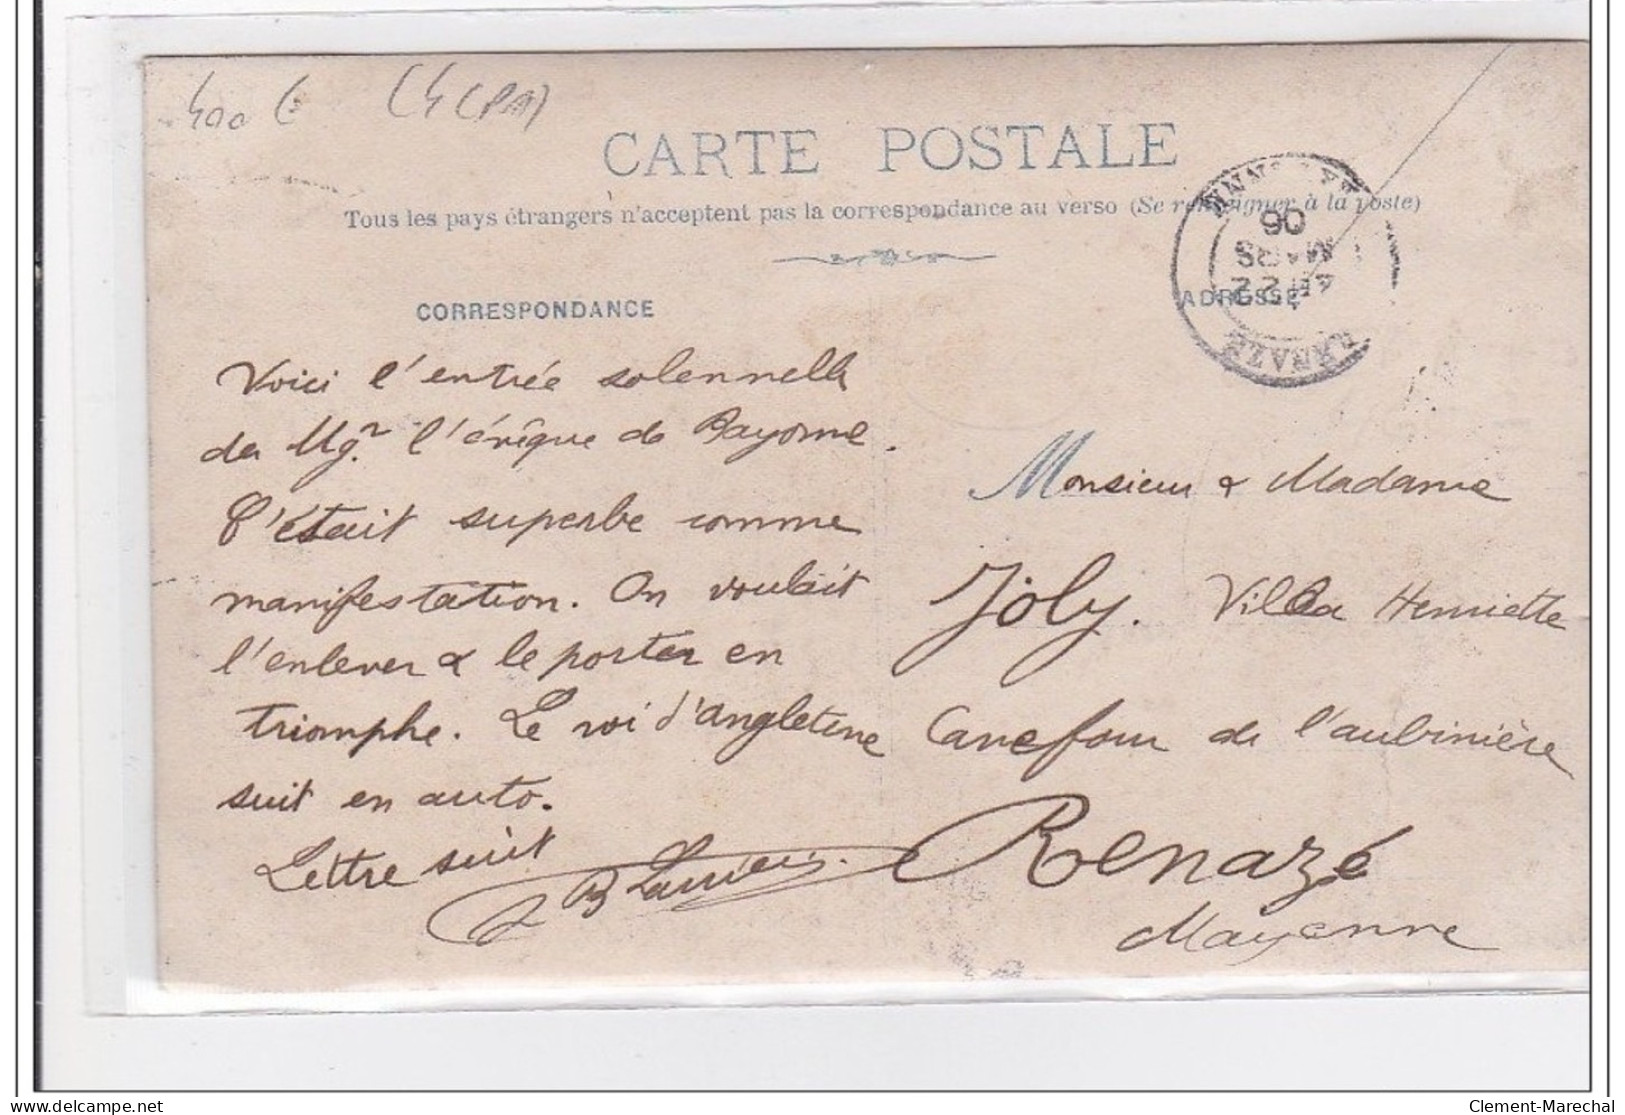 400 €
CARTE POSTALE
Tous les pays étrangers n'acceptent pas la correspondance au verso (Se renseigner à la poste)
CORRESPONDANCE
ADRESSE
MARS
06
Voici l'entrée solennelle
de Mgr l'évêque de Bayonne.
C'était superbe comme
manifestation. On voulait
l'enlever & le porter en
triomphe. Le roi d'Angleterre
suit en auto.
Lettre suit
Monsieur & Madame
Joly. Villa Henriette
Carrefour de l'aubinière
Renazé
Mayenne
Clement-Marechal
delcampe.net